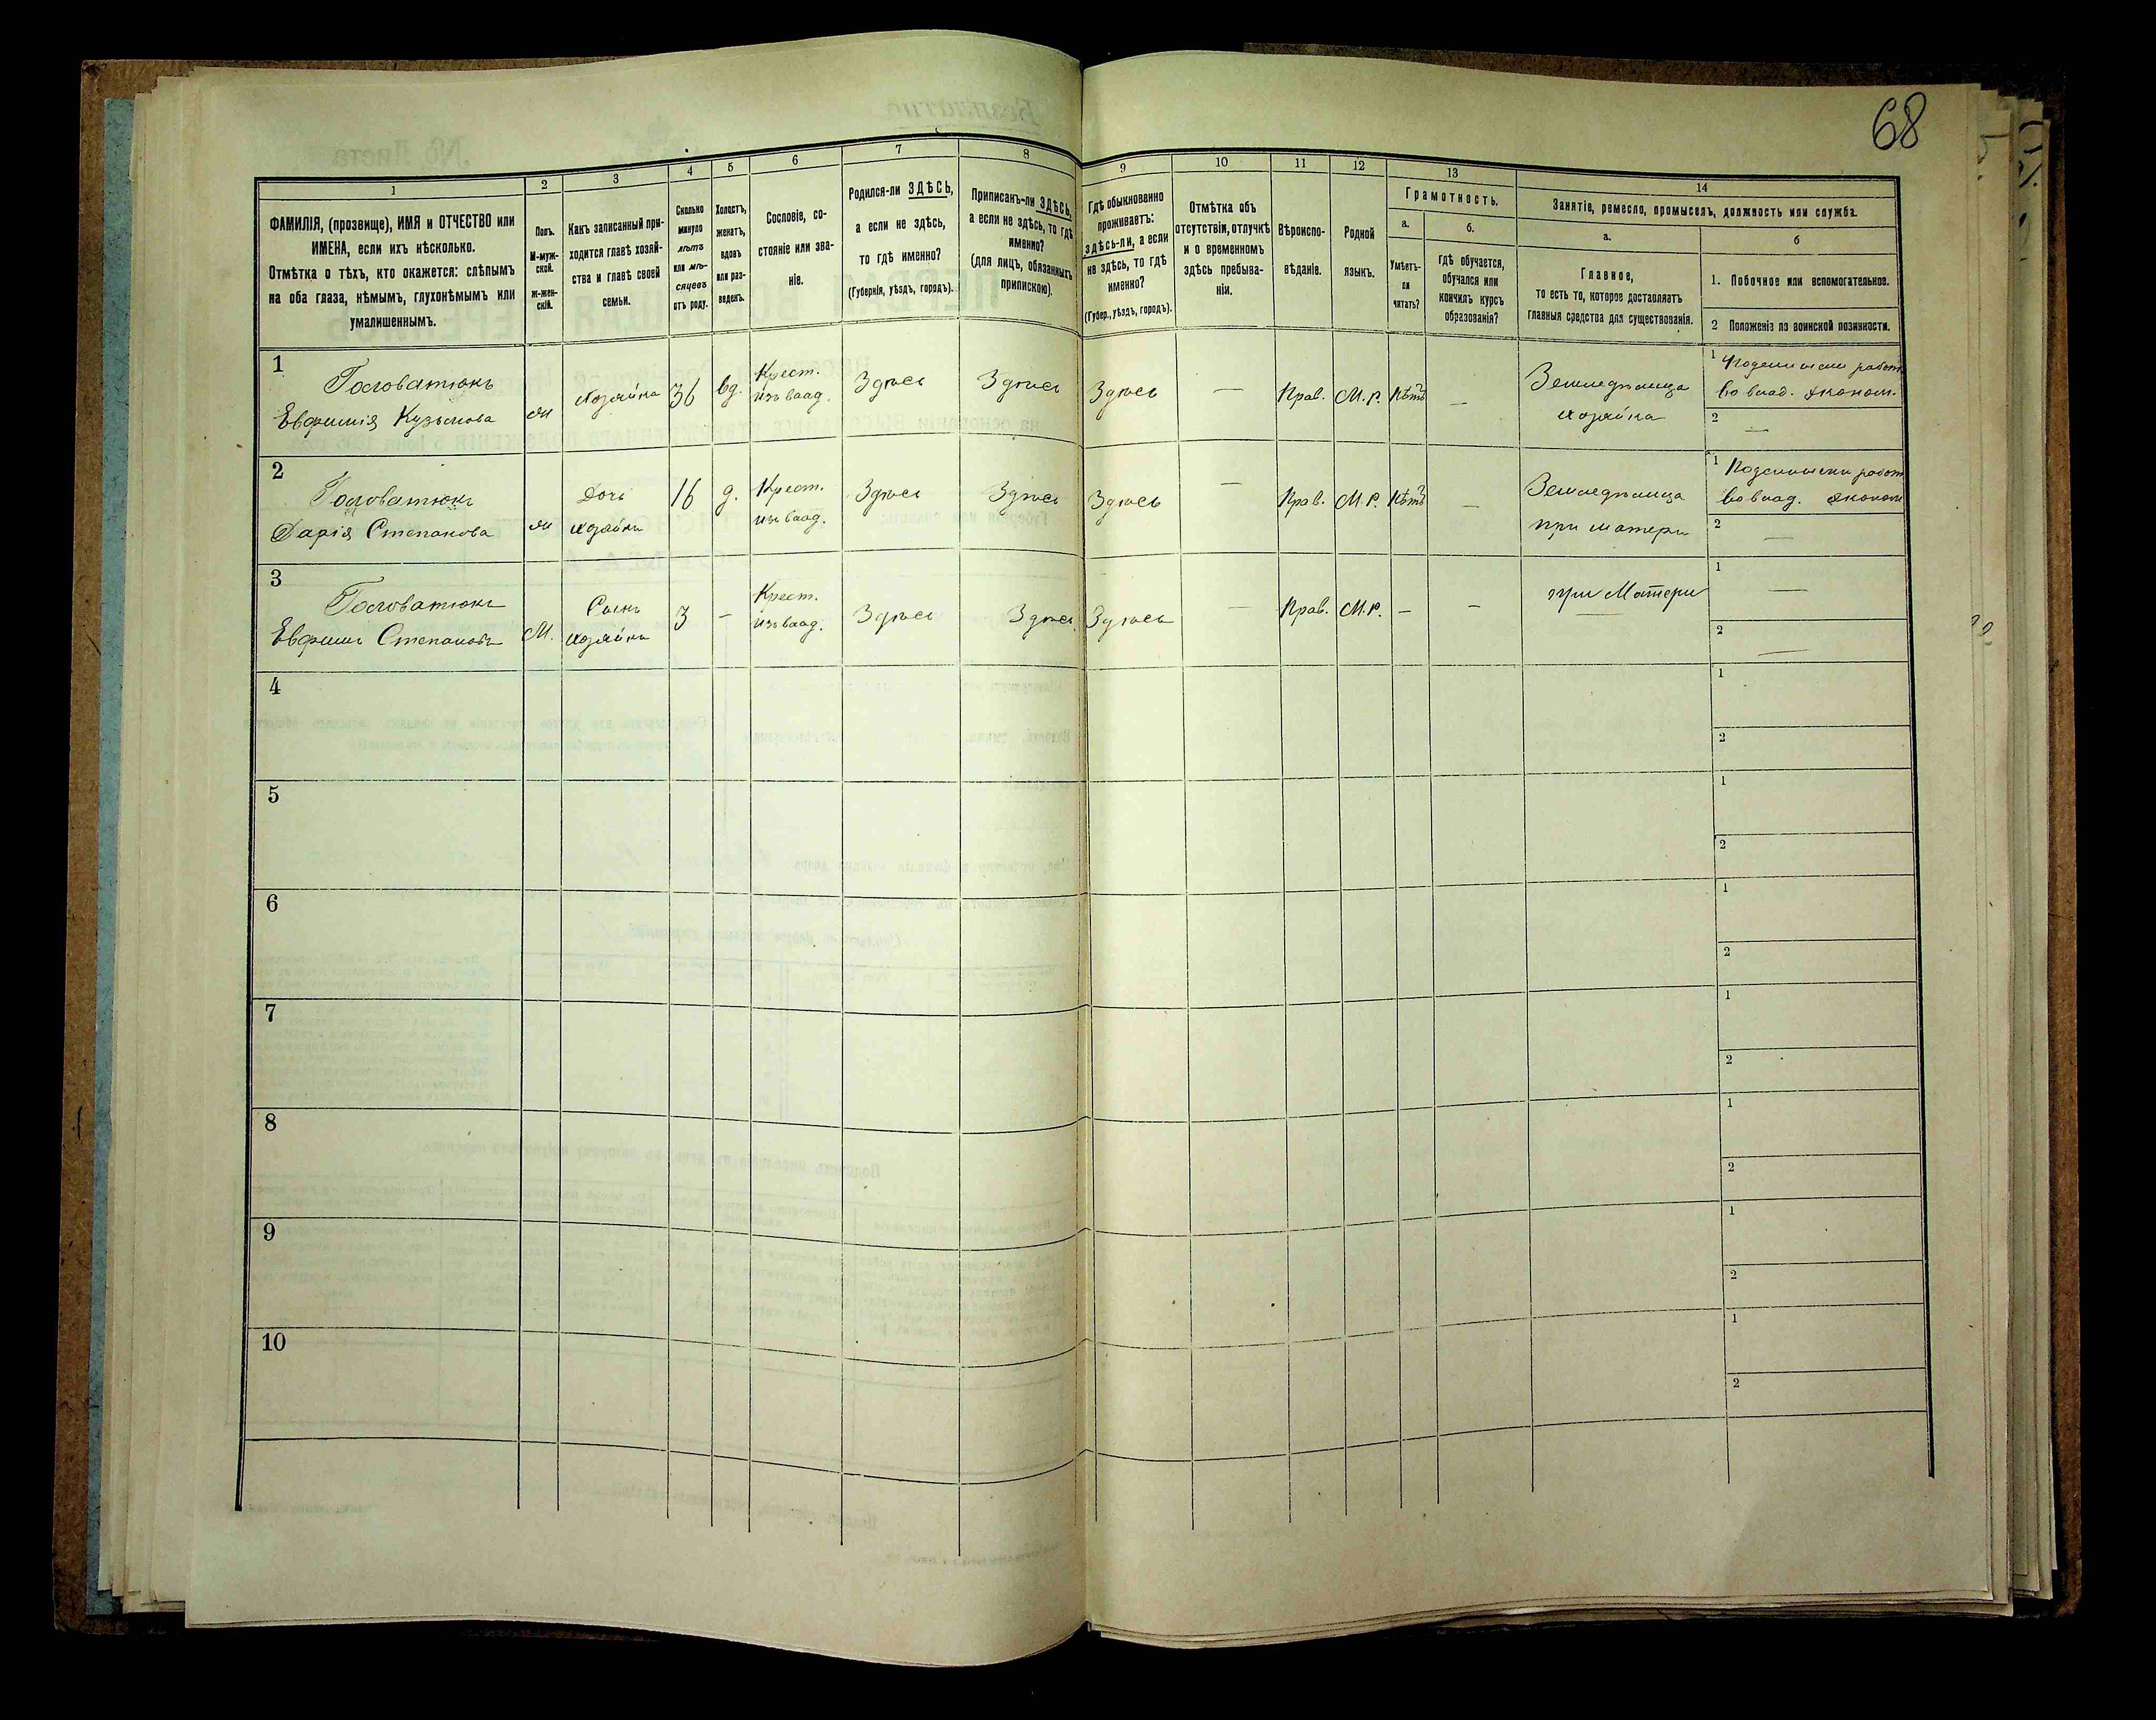 68
1
2
3
4
5
6
7
8
9
10
11
12
13
14
ФАМИЛІЯ, (прозвище), ИМЯ и ОТЧЕСТВО или
ИМЕНА, если ихъ нѣсколько.
Отмѣтка о тѣхъ, кто окажется: слѣпымъ
на оба глаза, нѣмымъ, глухонѣмымъ или
умалишеннымъ.
Полъ.
М-муж-
ской.
ж-жен-
скій.
Какъ записанный при-
ходится главѣ хозяй-
ства и главѣ своей
семьи.
Сколько
минуло
лѣтъ
или мѣ-
сяцевъ
отъ роду.
Холостъ,
женатъ,
вдовъ
или раз-
веденъ.
Сословіе, со-
стояніе или зва-
ніе.
Родился-ли ЗДѢСЬ,
а если не здѣсь,
то гдѣ именно?
(Губернія, уѣздъ, городъ).
Приписанъ-ли ЗДѢСЬ,
а если не здѣсь, то гдѣ
именно?
(для лицъ, обязанныхъ
припискою).
Гдѣ обыкновенно
проживаетъ:
здѣсь-ли, а если
не здѣсь, то гдѣ
именно?
(Губер., уѣздъ, городъ).
Отмѣтка объ
отсутствіи, отлучкѣ
и о временномъ
здѣсь пребыва-
ніи.
Вѣроиспо-
вѣданіе.
Родной
языкъ.
Грамотность.
а.
Умѣетъ-
ли
читать?
б.
гдѣ обучается,
обучался или
кончилъ курсъ
образованія?
Занятіе, ремесло, промыселъ, должность или служба.
а.
Главное,
то есть то, которое доставляетъ
главныя средства для существованія.
б
1. Побочное или вспомогательное.
2 Положеніе по воинской повинности.
1
Головатюкъ
Евфимія Кузьмова
ж
Хозяйка
36
вд.
Крест.
изъ влад.
Здѣсь
Здѣсь
Здѣсь
—
Прав.
М.р.
Нѣтъ
—
Земледѣлица
хозяйка
1
работ.
во влад. эконом.
2 —
2
Головатюкъ
Дарія Степанова
ж
Дочь
хозяйки
16
д.
Крест.
изъ влад.
Здѣсь
Здѣсь
Здѣсь
—
Прав.
М.р.
Нѣтъ
—
Земледѣлица
при матери
1
работ
во влад. эконом
2 —
3
Головатюкъ
Евфимъ Степановъ
М.
Сынъ
хозяйки
3
—
Крест.
изъ влад.
Здѣсь
Здѣсь
Здѣсь
—
Прав.
М.р.
—
—
при Матери
1 —
2 —
4
1
2
5
1
2
6
1
2
7
1
2
8
1
2
9
1
2
10
1
2